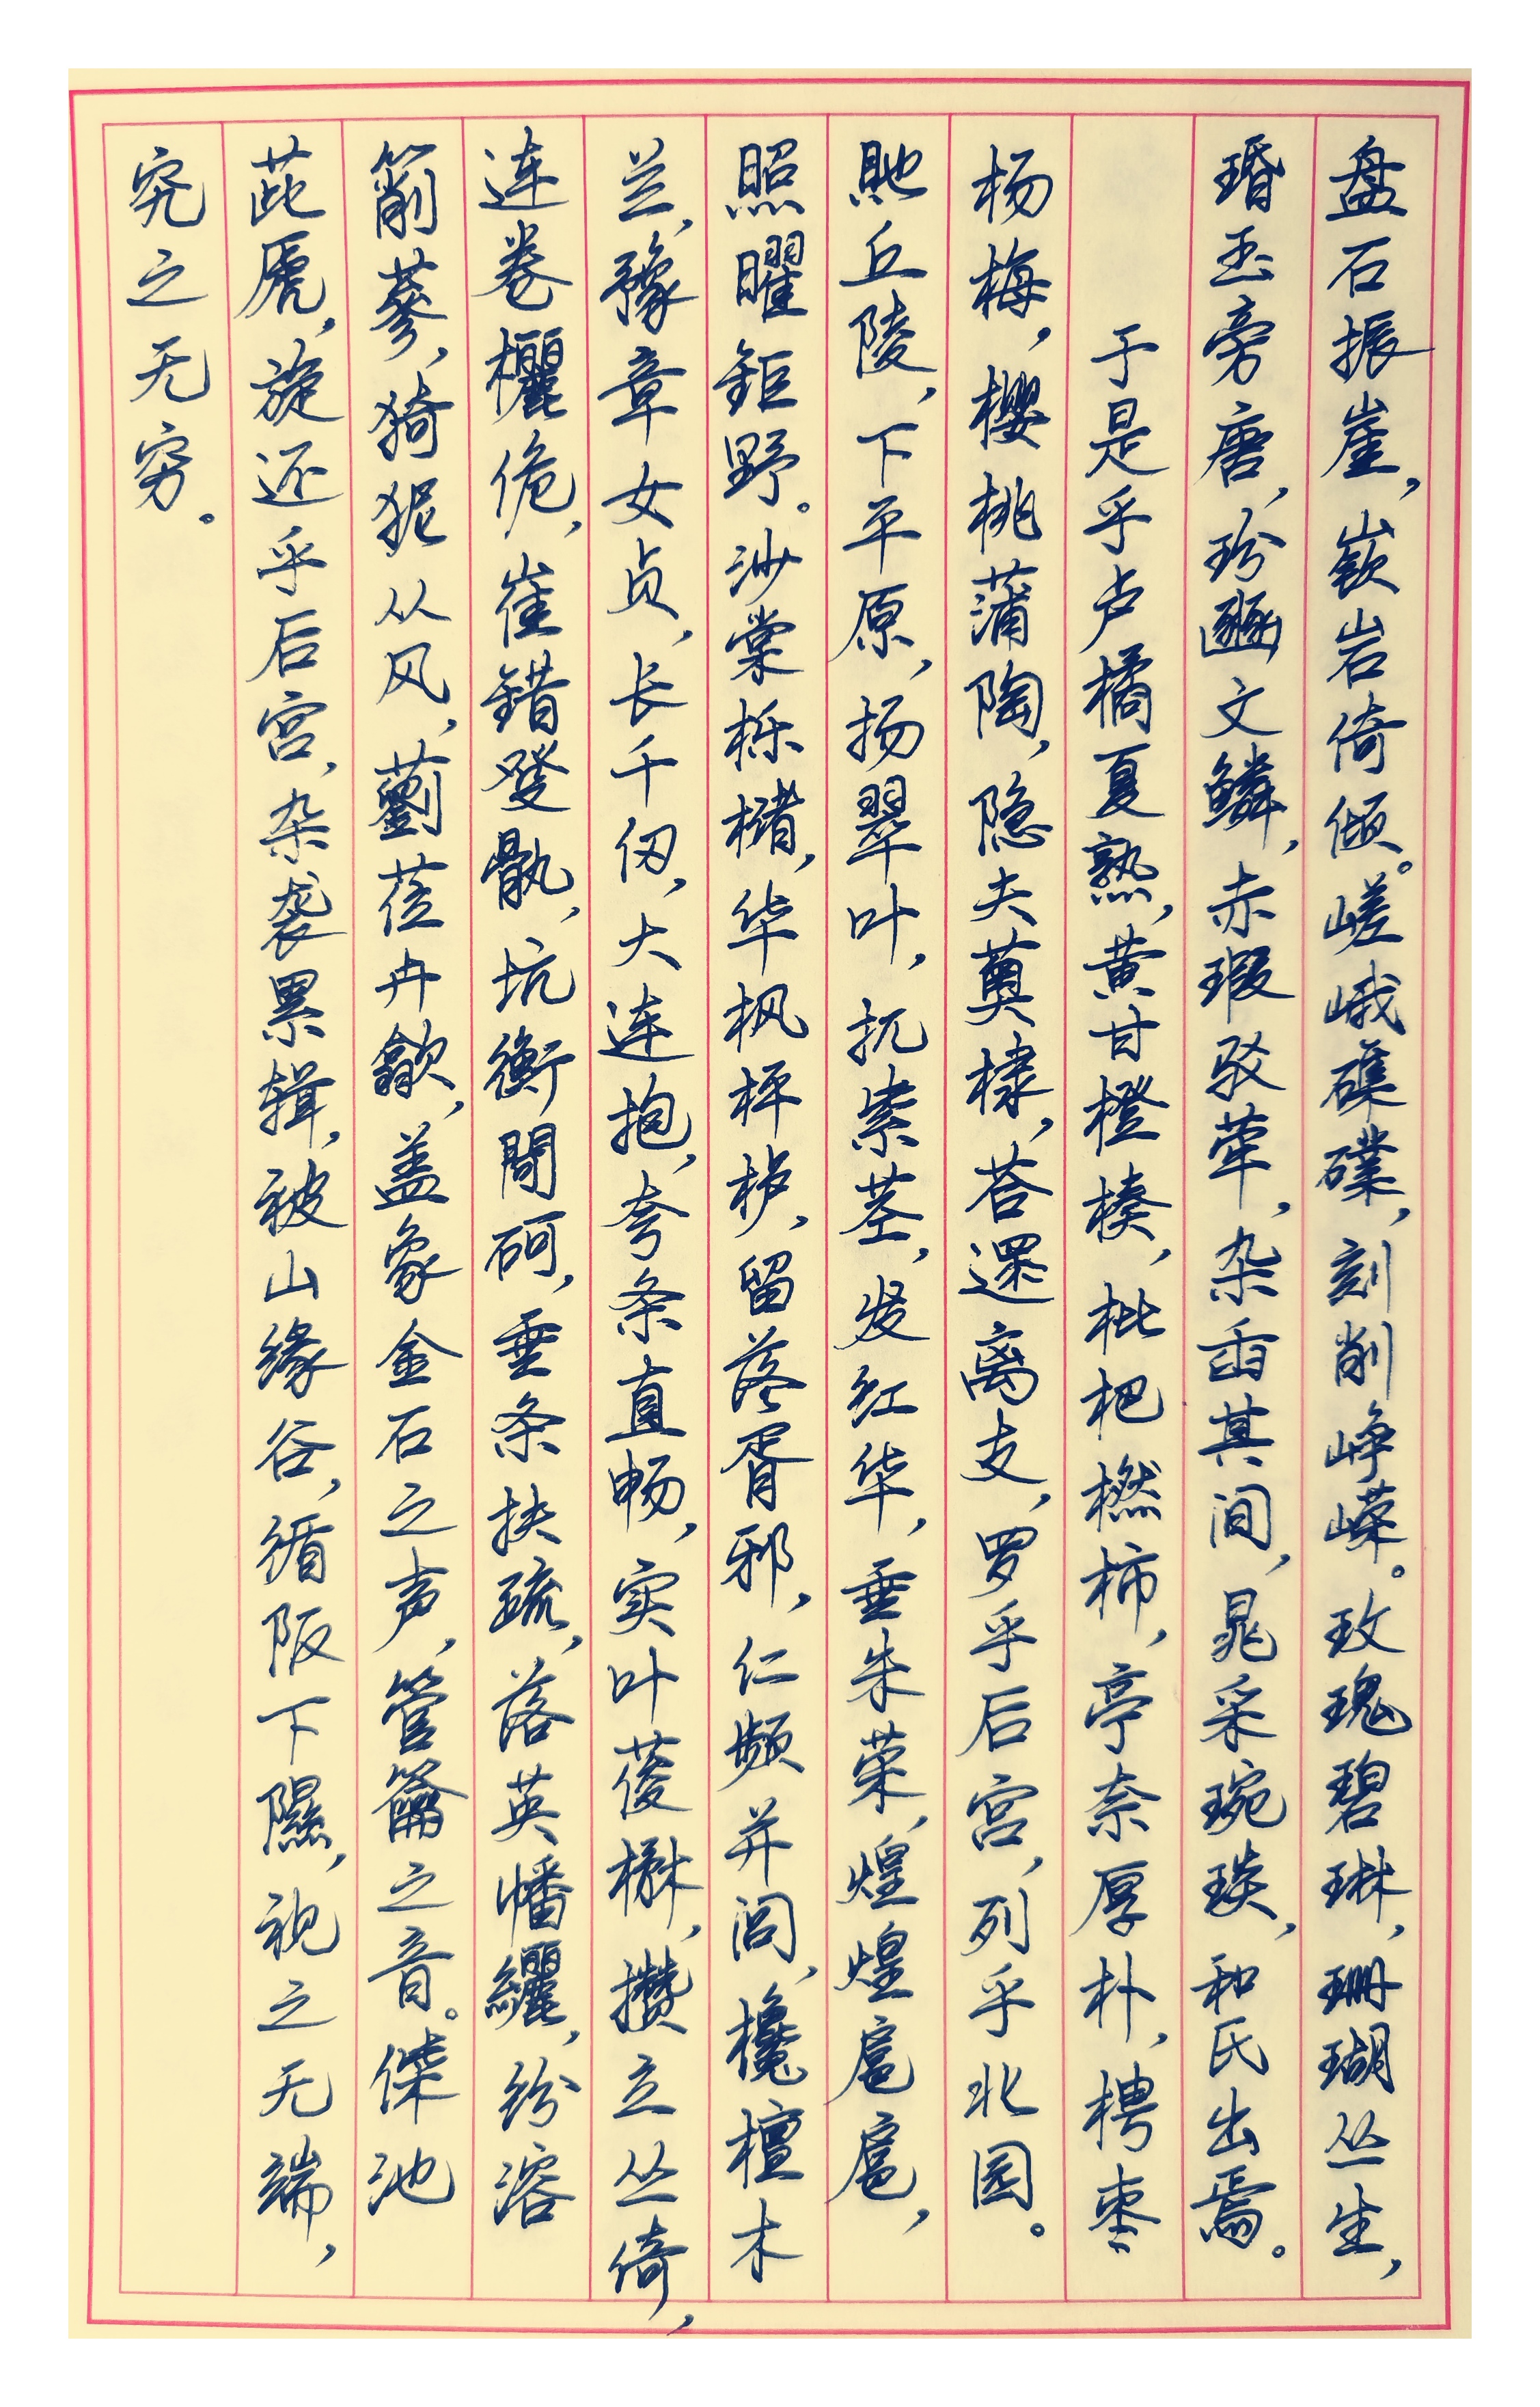 盘石振崖，嵚岩倚倾。嵯峨磼礏，刻削峥嵘。玫瑰碧琳，珊瑚丛生，
瑉玉旁唐，玢豳文鳞，赤瑕驳荦，杂臿其间，晁采琬琰，和氏出焉。
于是乎卢橘夏熟，黄甘橙楱，枇杷橪柿，亭奈厚朴，梬枣
杨梅，樱桃蒲陶，隐夫薁棣，荅遝离支，罗乎后宫，列乎北园。
貤丘陵，下平原，扬翠叶，扤紫茎，发红华，垂朱荣，煌煌扈扈，
照曜钜野。沙棠栎槠，华枫枰栌，留落胥邪，仁频并闾，欃檀木
兰，豫章女贞，长千仞，大连抱，夸条直畅，实叶葰楙，攒立丛倚，
连卷欐佹，崔错癹骫，坑衡閜砢，垂条扶疏，落英幡纚，纷溶
箾蔘，猗狔从风，藰莅卉歙，盖象金石之声，管籥之音。偨池
茈虒，旋还乎后宫，杂袭累辑，被山缘谷，循阪下隰，视之无端，
究之无穷。